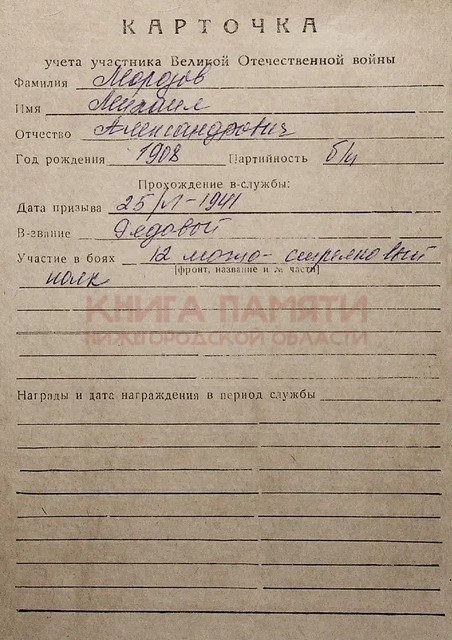 КАРТОЧКА
учета участника Великой Отечественной войны
Фамилия Морозов
Имя Михаил
Отчество Александрович
Год рождения 1908 Партийность б/п
Прохождение в-службы:
Дата призыва 25/VI-1941
В-звание Рядовой
Участие в боях 12 мото-стрелковый
[фронт, название и № части]
полк
КНИГА ПАМЯТИ
НИЖЕГОРОДСКОЙ ОБЛАСТИ
Награды и дата награждения в период службы